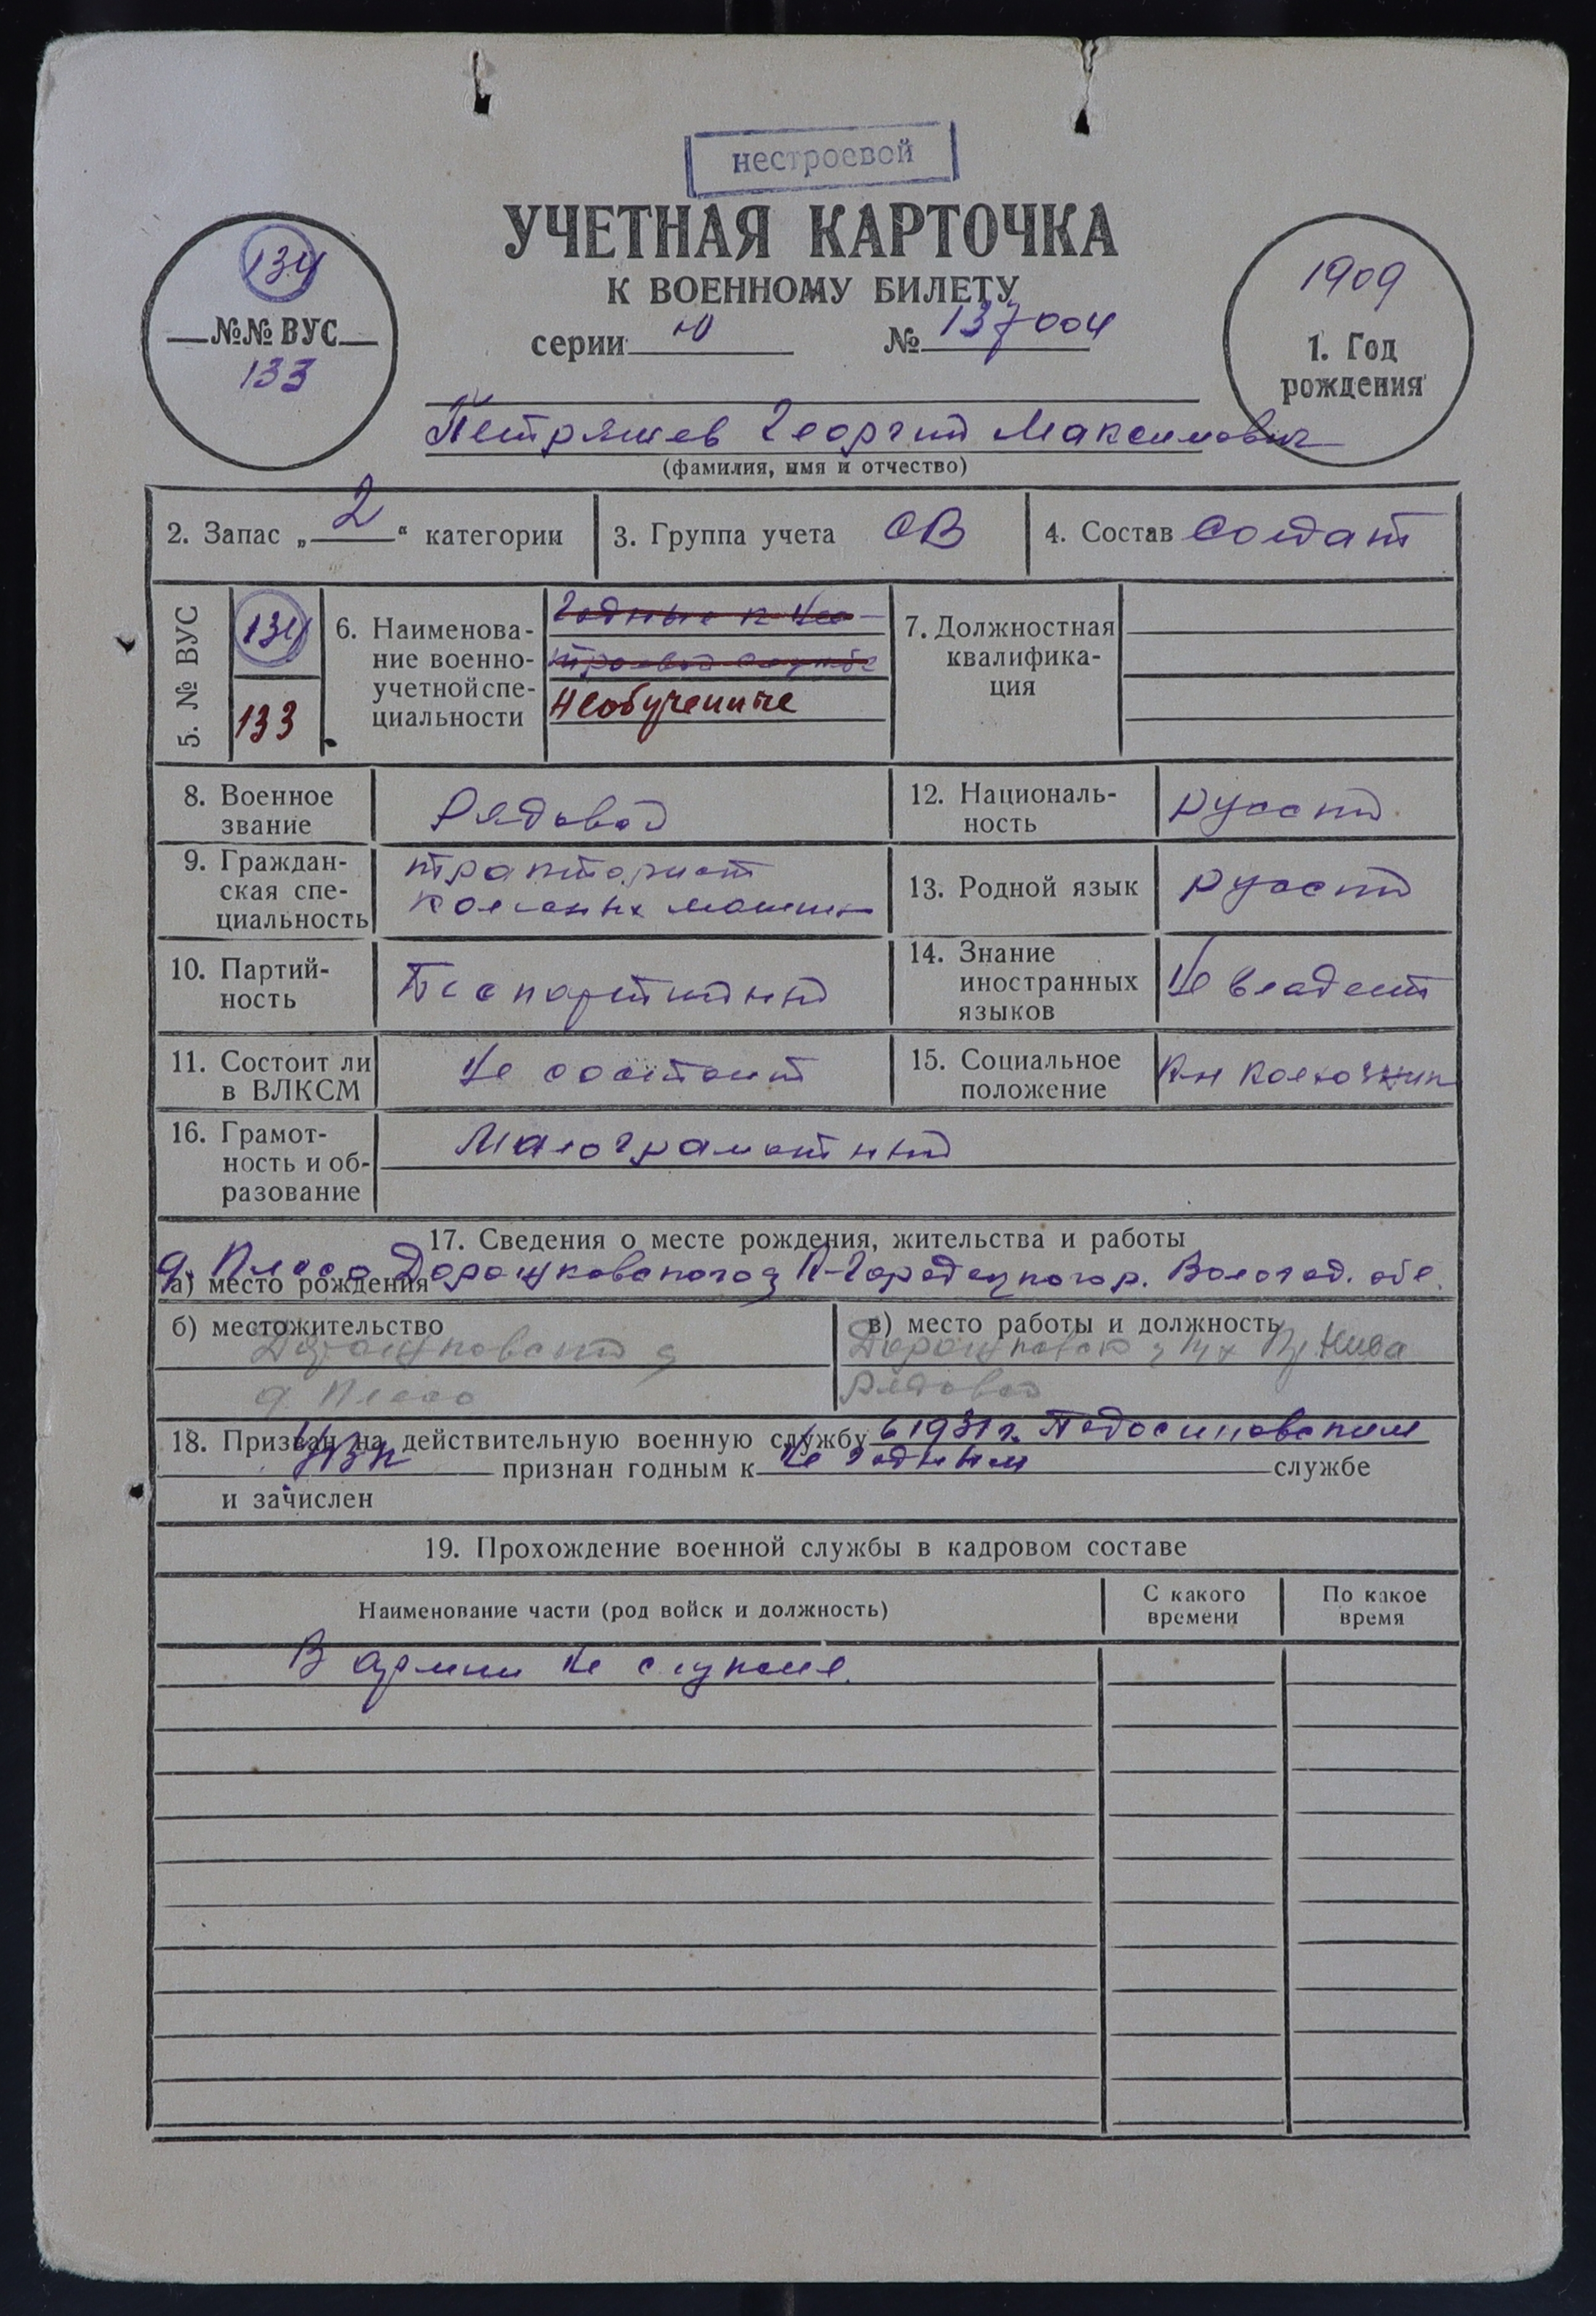 нестроевой
УЧЕТНАЯ КАРТОЧКА
К ВОЕННОМУ БИЛЕТУ
серии Ю № 137004
134
№№ ВУС
133
1909
1. Год
рождения
Петряшев Георгий Максимович
(фамилия, имя и отчество)
2. Запас „2“ категории
3. Группа учета ОВ
4. Состав солдат
5. № ВУС
134
133
6. Наименова-
ние военно-
учетной спе-
циальности
Годные к нес-
троевой службе
Необученные
7. Должностная
квалифика-
ция
8. Военное
звание
Рядовой
12. Националь-
ность
русский
9. Граждан-
ская спе-
циальность
тракторист
колесных машин
13. Родной язык
русский
10. Партий-
ность
Беспартийный
14. Знание
иностранных
языков
Не владеет
11. Состоит ли
в ВЛКСМ
Не состоит
15. Социальное
положение
16. Грамот-
ность и об-
разование
Малограмотный
17. Сведения о месте рождения, жительства и работы
а) место рождения
д. Плесо К-Городецкого р. Вологод. обл.
б) местожительство
д. Плесо
в) место работы и должность
Нива
рядовой
18. Призван на действительную военную службу в 1931 г. Подосиновским
признан годным к Не годным службе
и зачислен
19. Прохождение военной службы в кадровом составе
Наименование части (род войск и должность)
С какого
времени
По какое
время
В армии не служил.